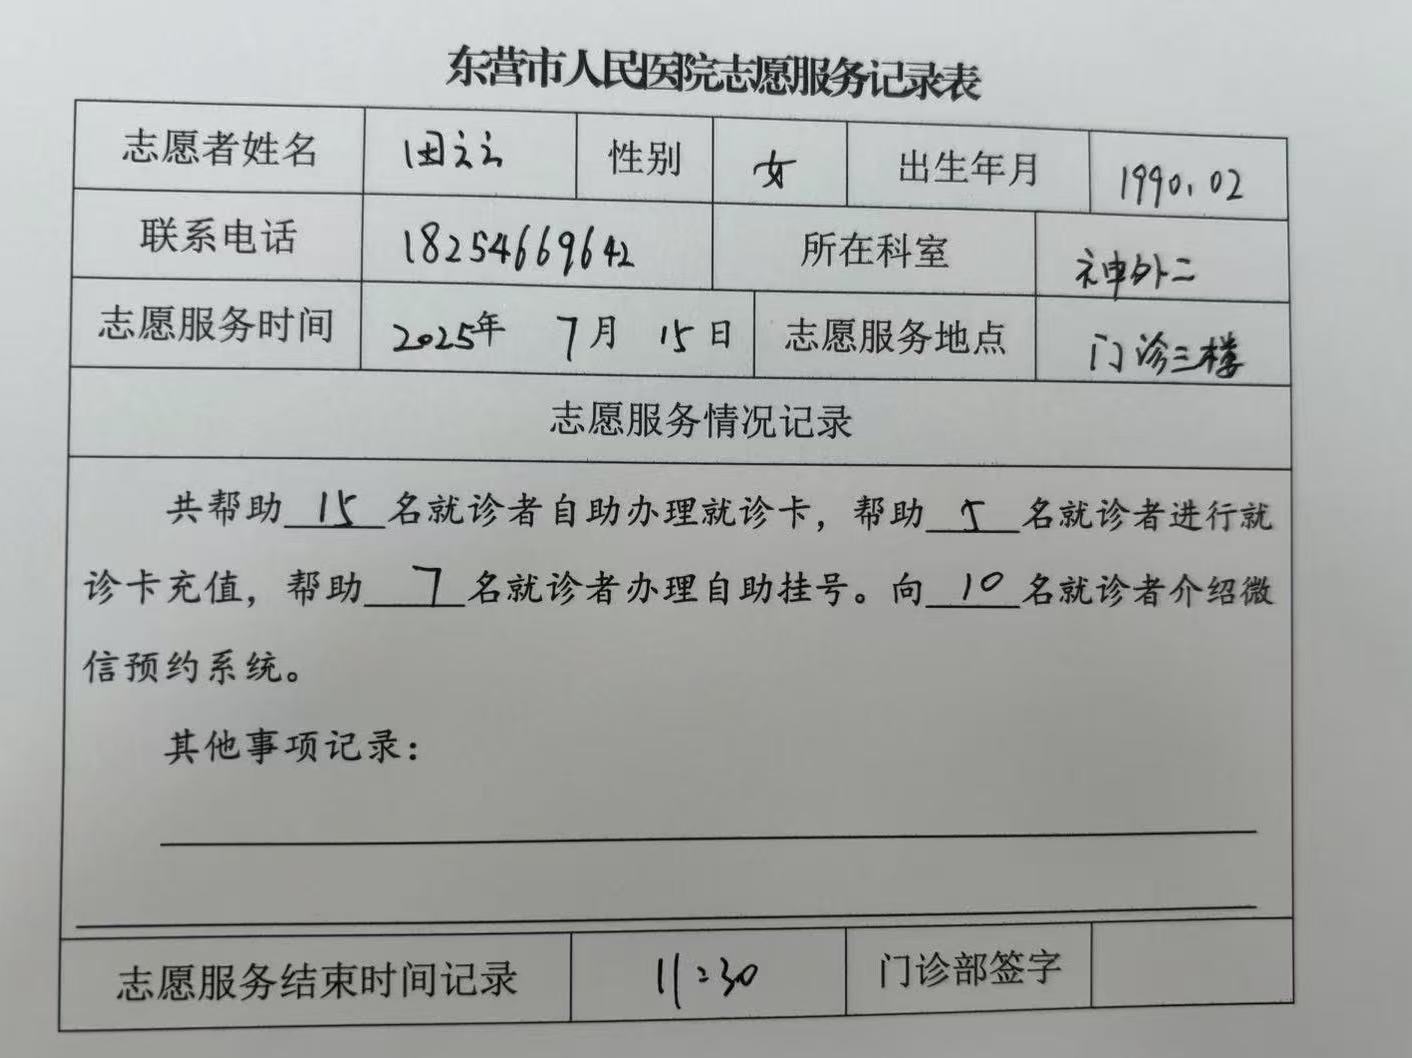 东营市人民医院志愿服务记录表
志愿者姓名 田立立 性别 女 出生年月 1990.02
联系电话 18254669642 所在科室 神外二
志愿服务时间 2025年 7月 15日 志愿服务地点 门诊三楼
志愿服务情况记录
共帮助 15 名就诊者自助办理就诊卡，帮助 5 名就诊者进行就
诊卡充值，帮助 7 名就诊者办理自助挂号。向 10 名就诊者介绍微
信预约系统。
其他事项记录：
志愿服务结束时间记录 11:30 门诊部签字